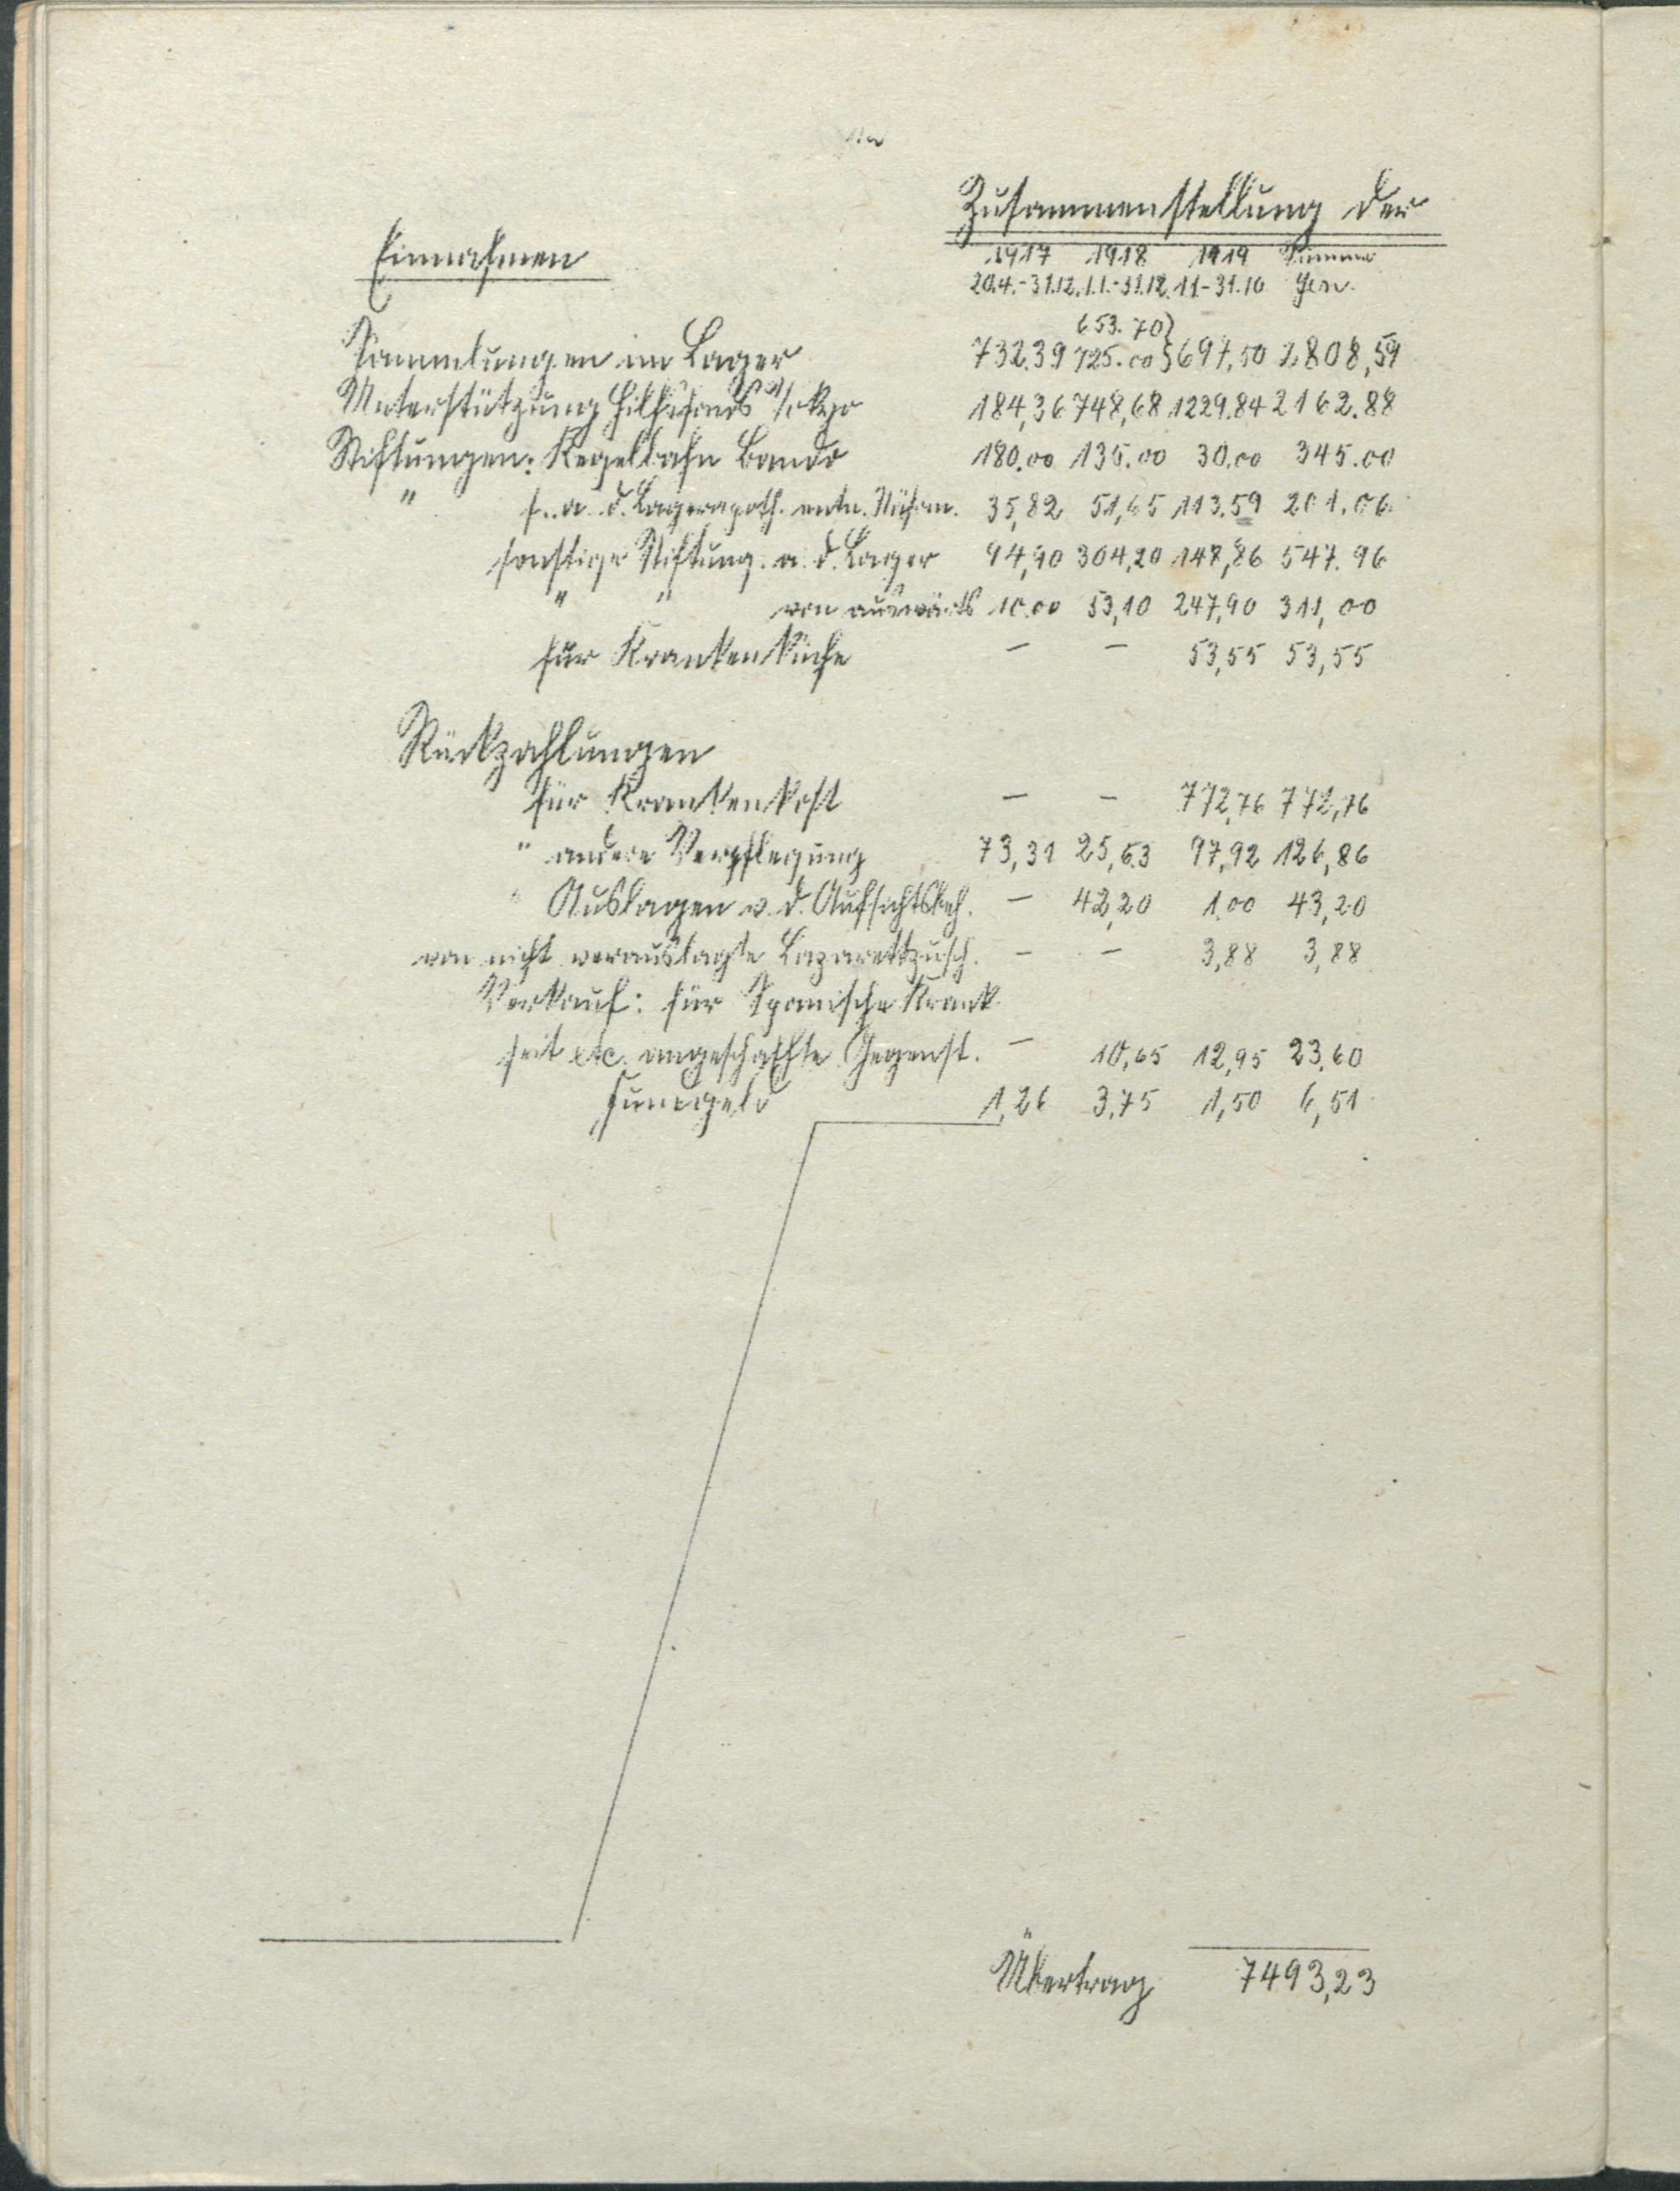 Zusammenstellung der
Einnahmen
1917 1918 1919 Summe
20.4.-31.12. 1.1.-31.12. 1.1.-31.10 Yen.
653.70}
Sammlungen im Lager 732.39 725.00} 697,50 2808,59
Unterstützung Hilfsfonds Tokyo 184,36 748,68 1229.84 2162.88
Stiftungen: Kegelbahn Bando 180.00 135.00 30.00 345.00
" f. a. d. Lagerapoth. entn. 35,82 51,65 113.59 201.06
sonstige Stiftung. a. d. Lager 94,90 304,20 148,86 547.96
" " von auswärts 10.00 53,10 247,90 311,00
für Krankenküche – – 53,55 53,55
Rückzahlungen
für Krankenkost – – 772,76 772,76
" andere Verpflegung 73,31 25,63 97,92 126,86
" Auslagen v. d. Aufsichtsbeh. – 42,20 1,00 43,20
von nicht verauslagte Lazarettzusch. – – 3,88 3,88
Verkauf: für Spanische Krank-
heit etc. angeschaffte Gegenst. – 10,65 12,95 23,60
Fundgeld 1,26 3,75 1,50 6,51
Übertrag 7493,23